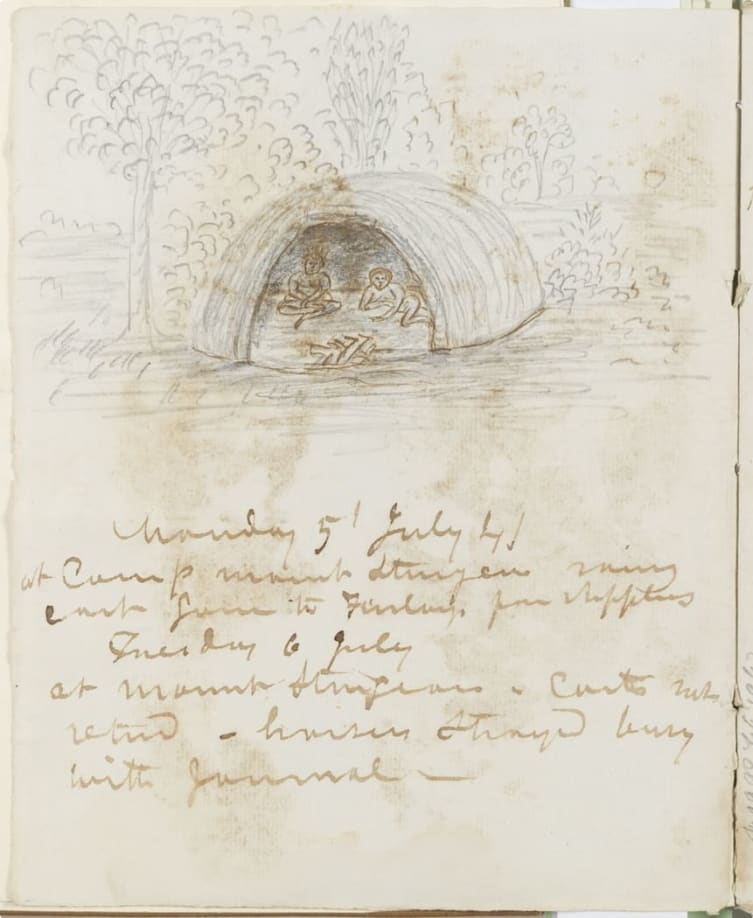 Monday 5' July 41
at Camp mount Sturgeon rainy
cart gone to for supplies
Tuesday 6 July
at mount Sturgeon - Carts not
retnd - horses strayed busy
with Journal -